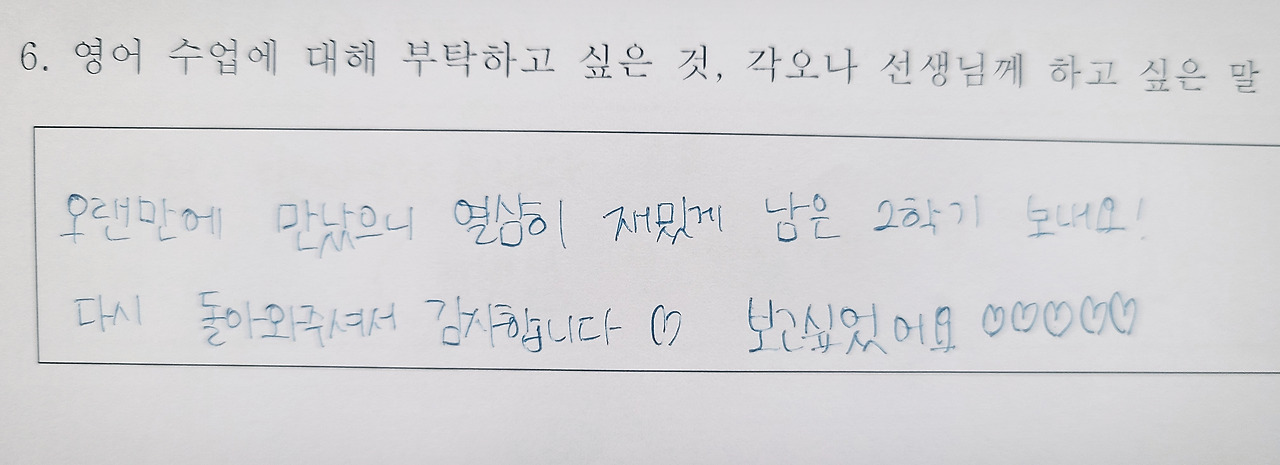 6. 영어 수업에 대해 부탁하고 싶은 것, 각오나 선생님께 하고 싶은 말
오랜만에 만났으니 열심히 재밌게 남은 2학기 보내요!
다시 돌아와주셔서 감사합니다 ♡ 보고싶었어요 ♡♡♡♡♡